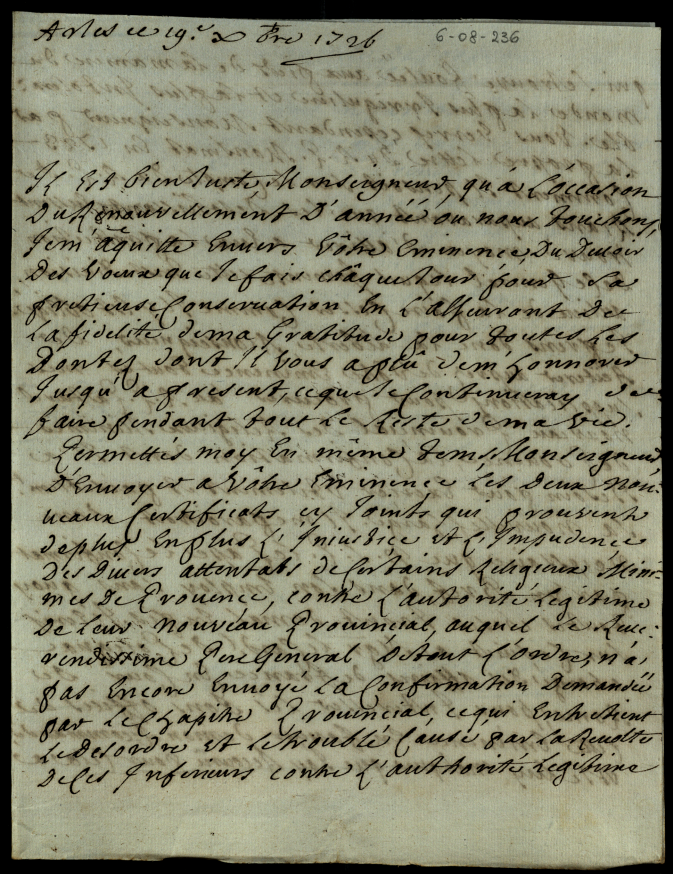 Arles ce 19.e Xbre 1726
6-08-236
Il Est bien Juste, Monseigneur, qu'a L'occasion
Du Renouvellement D'année ou nous touchons,
Je m'aquitte Envers Vôtre Eminence, Du Devoir
Des Voeux que Je fais châque Jour pour Sa
pretieuse Conservation En L'assurant De
La fidelité de ma Gratitude pour toutes Les
Bontez dont Il Vous a plû de m'honnorer
Jusqu'a present, ce que Je Continueray de
faire pendant tout Le Reste de ma Vie.
Permettés moy En même tems Monseigneur
D'Envoyer a Vôtre Eminence Les Deux Nou-
veaux Certificats cy Joints qui prouvent
de plus En plus L'Injustice et L'Impudence
Des Divers attentats de Certains Religieux Mini-
mes De Provence, contre L'autorité Legitime
De Leur nouveau Provincial, auquel Le Reve-
rendissime Pere General De tout L'ordre, n'a
pas Encore Envoyé La Confirmation Demandée
par Le Chapitre Provincial, ce qui Entretient
Le Desordre et Le trouble Causé par La Revolte
De Ces Inferieurs contre L'authorité Legitime